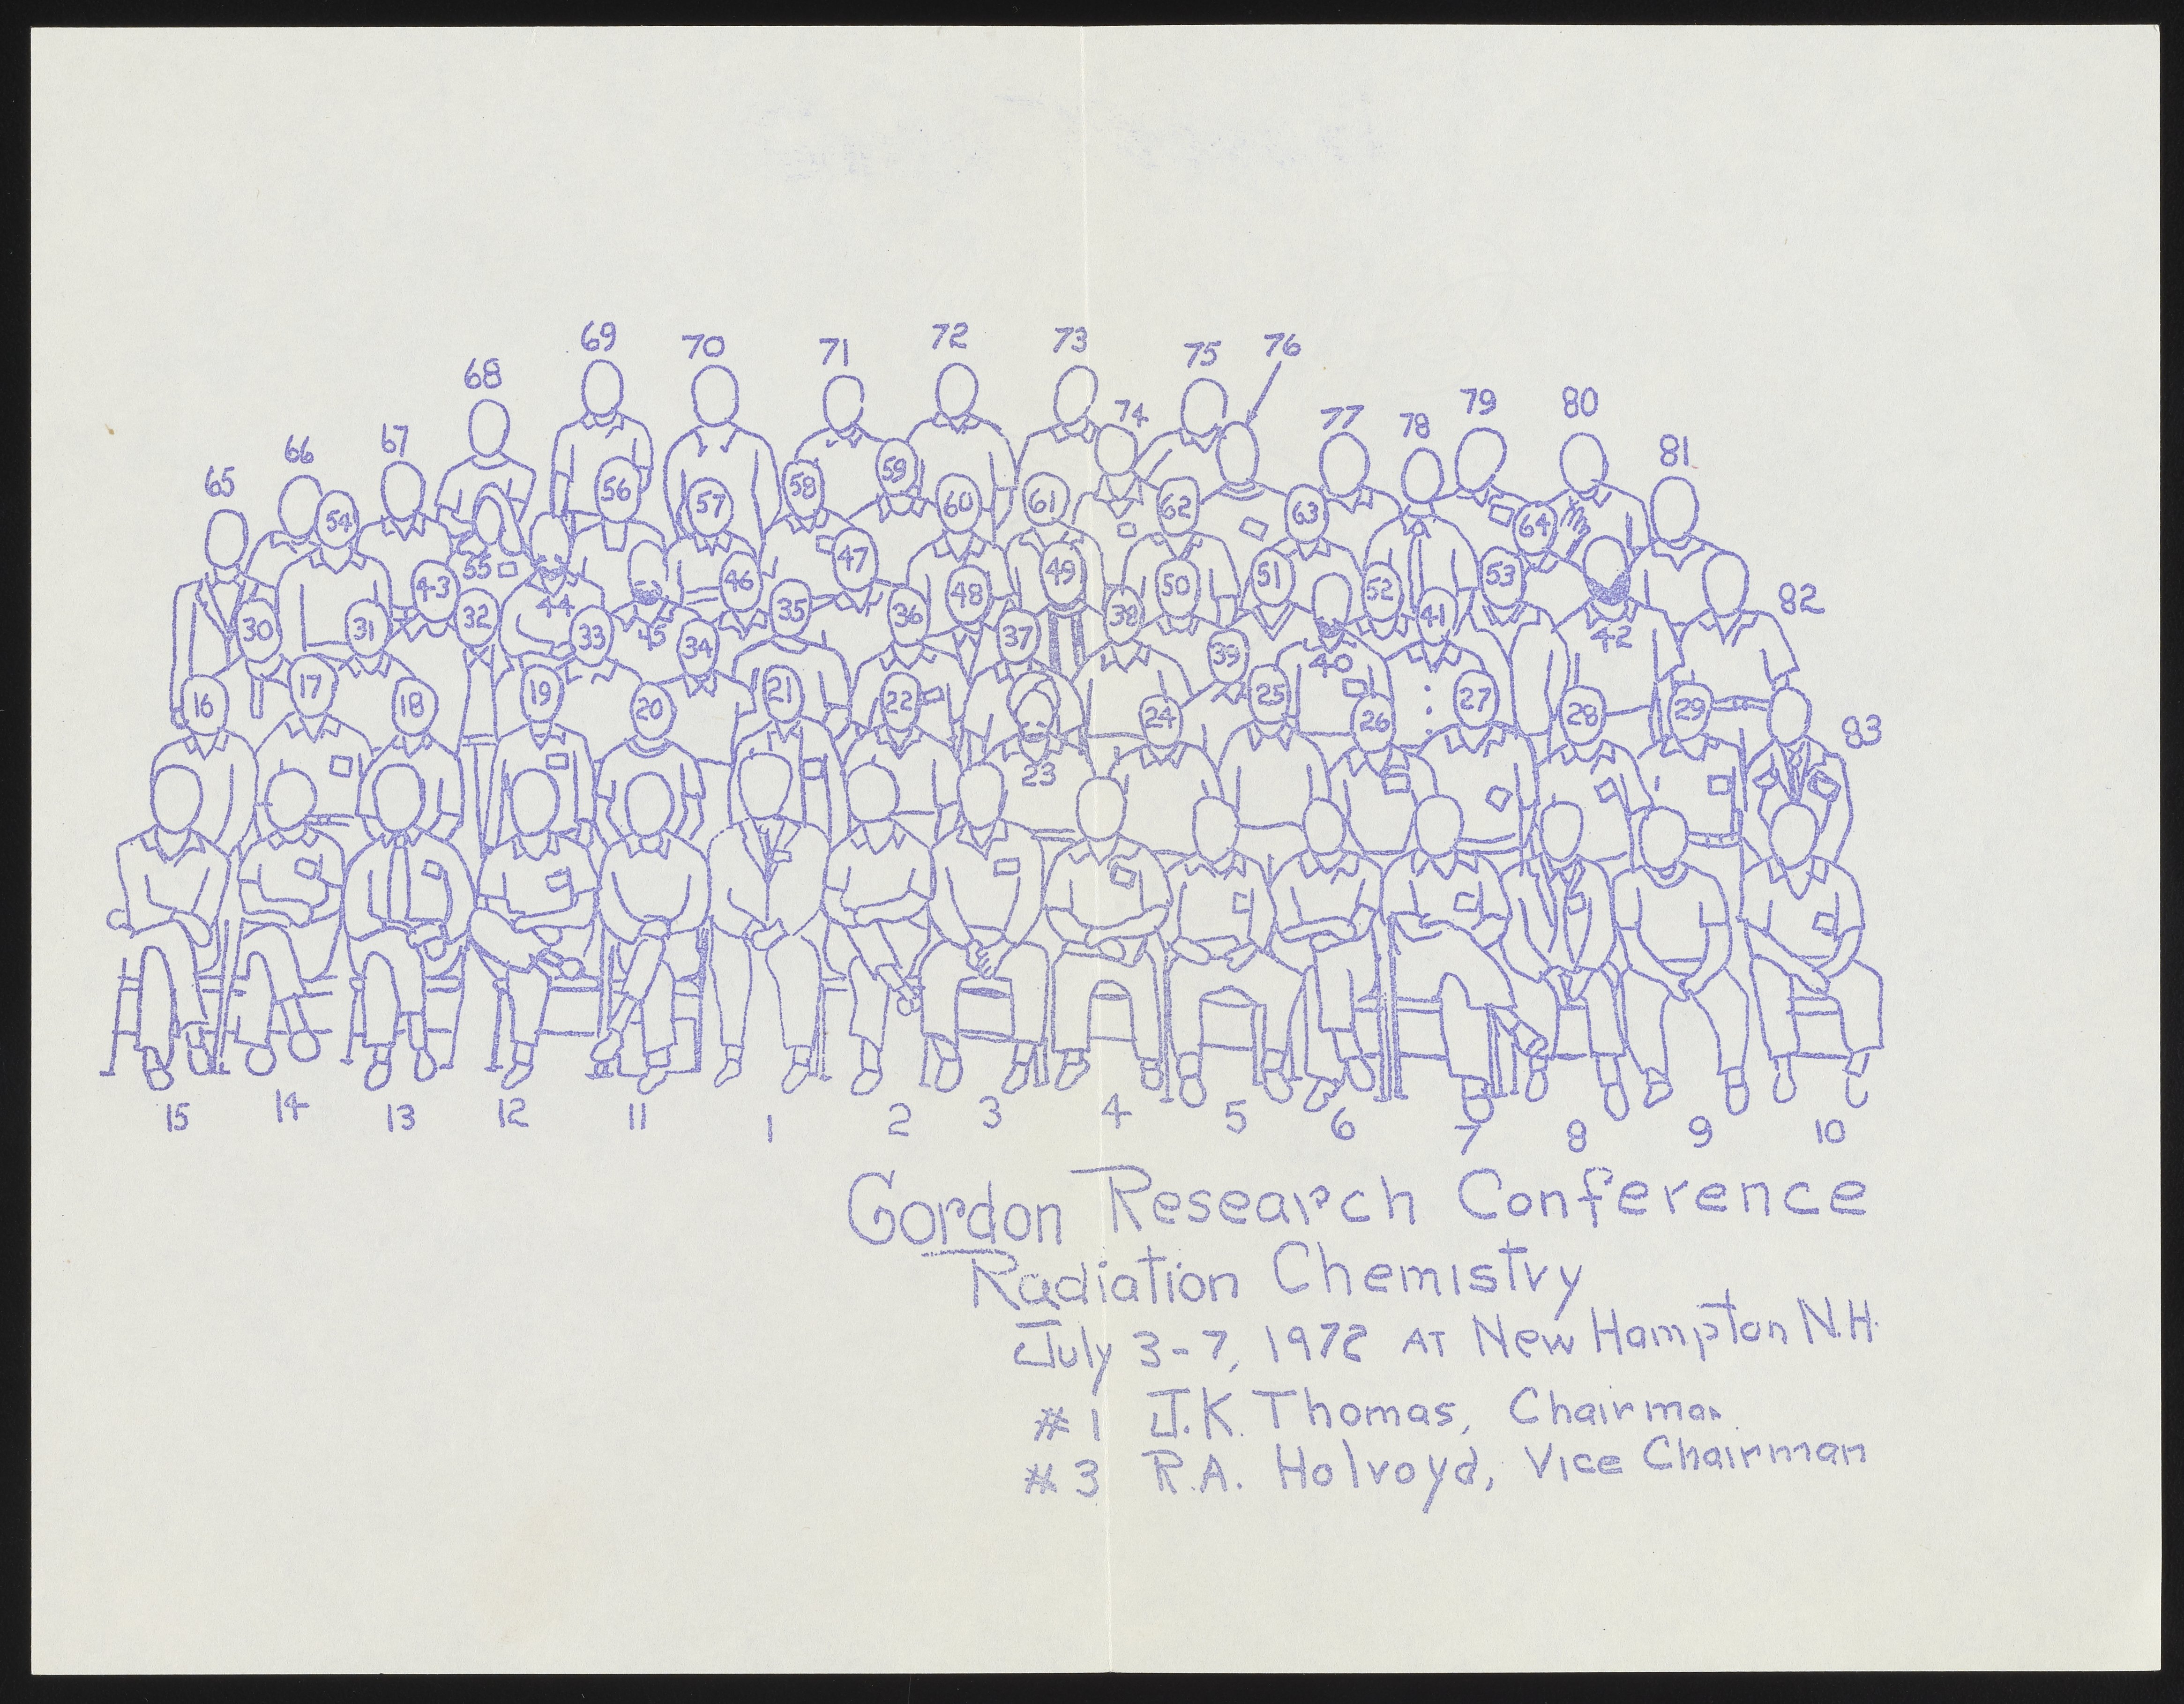 69 70 71 72 73 75 76
68 74 79 80
66 67 77 78 81
65 54 56 57 58 59 60 61 62 63 64
55 43 44 45 46 47 48 49 50 51 52 53 82
30 31 32 33 34 35 36 37 38 39 40 41 42
16 17 18 19 20 21 22 23 24 25 26 27 28 29 83
15 14 13 12 11 1 2 3 4 5 6 7 8 9 10
Gordon Research Conference
Radiation Chemistry
July 3-7, 1972 AT New Hampton N.H.
#1 J.K. Thomas, Chairman
#3 R.A. Holroyd, Vice Chairman